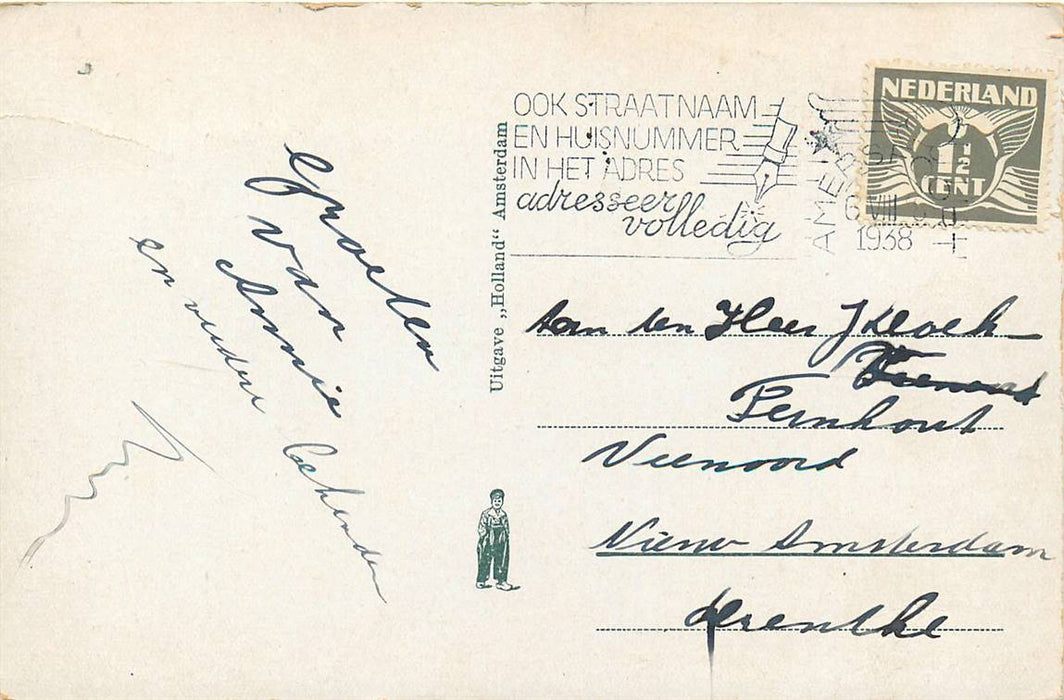 Groeten
van
Annie
en verdere bekenden
Uitgave „Holland“ Amsterdam
OOK STRAATNAAM
EN HUISNUMMER
IN HET ADRES
adresseer
volledig
1938
NEDERLAND
1½
CENT
Aan den Heer J
Veenoord
Nieuw Amsterdam
Drenthe